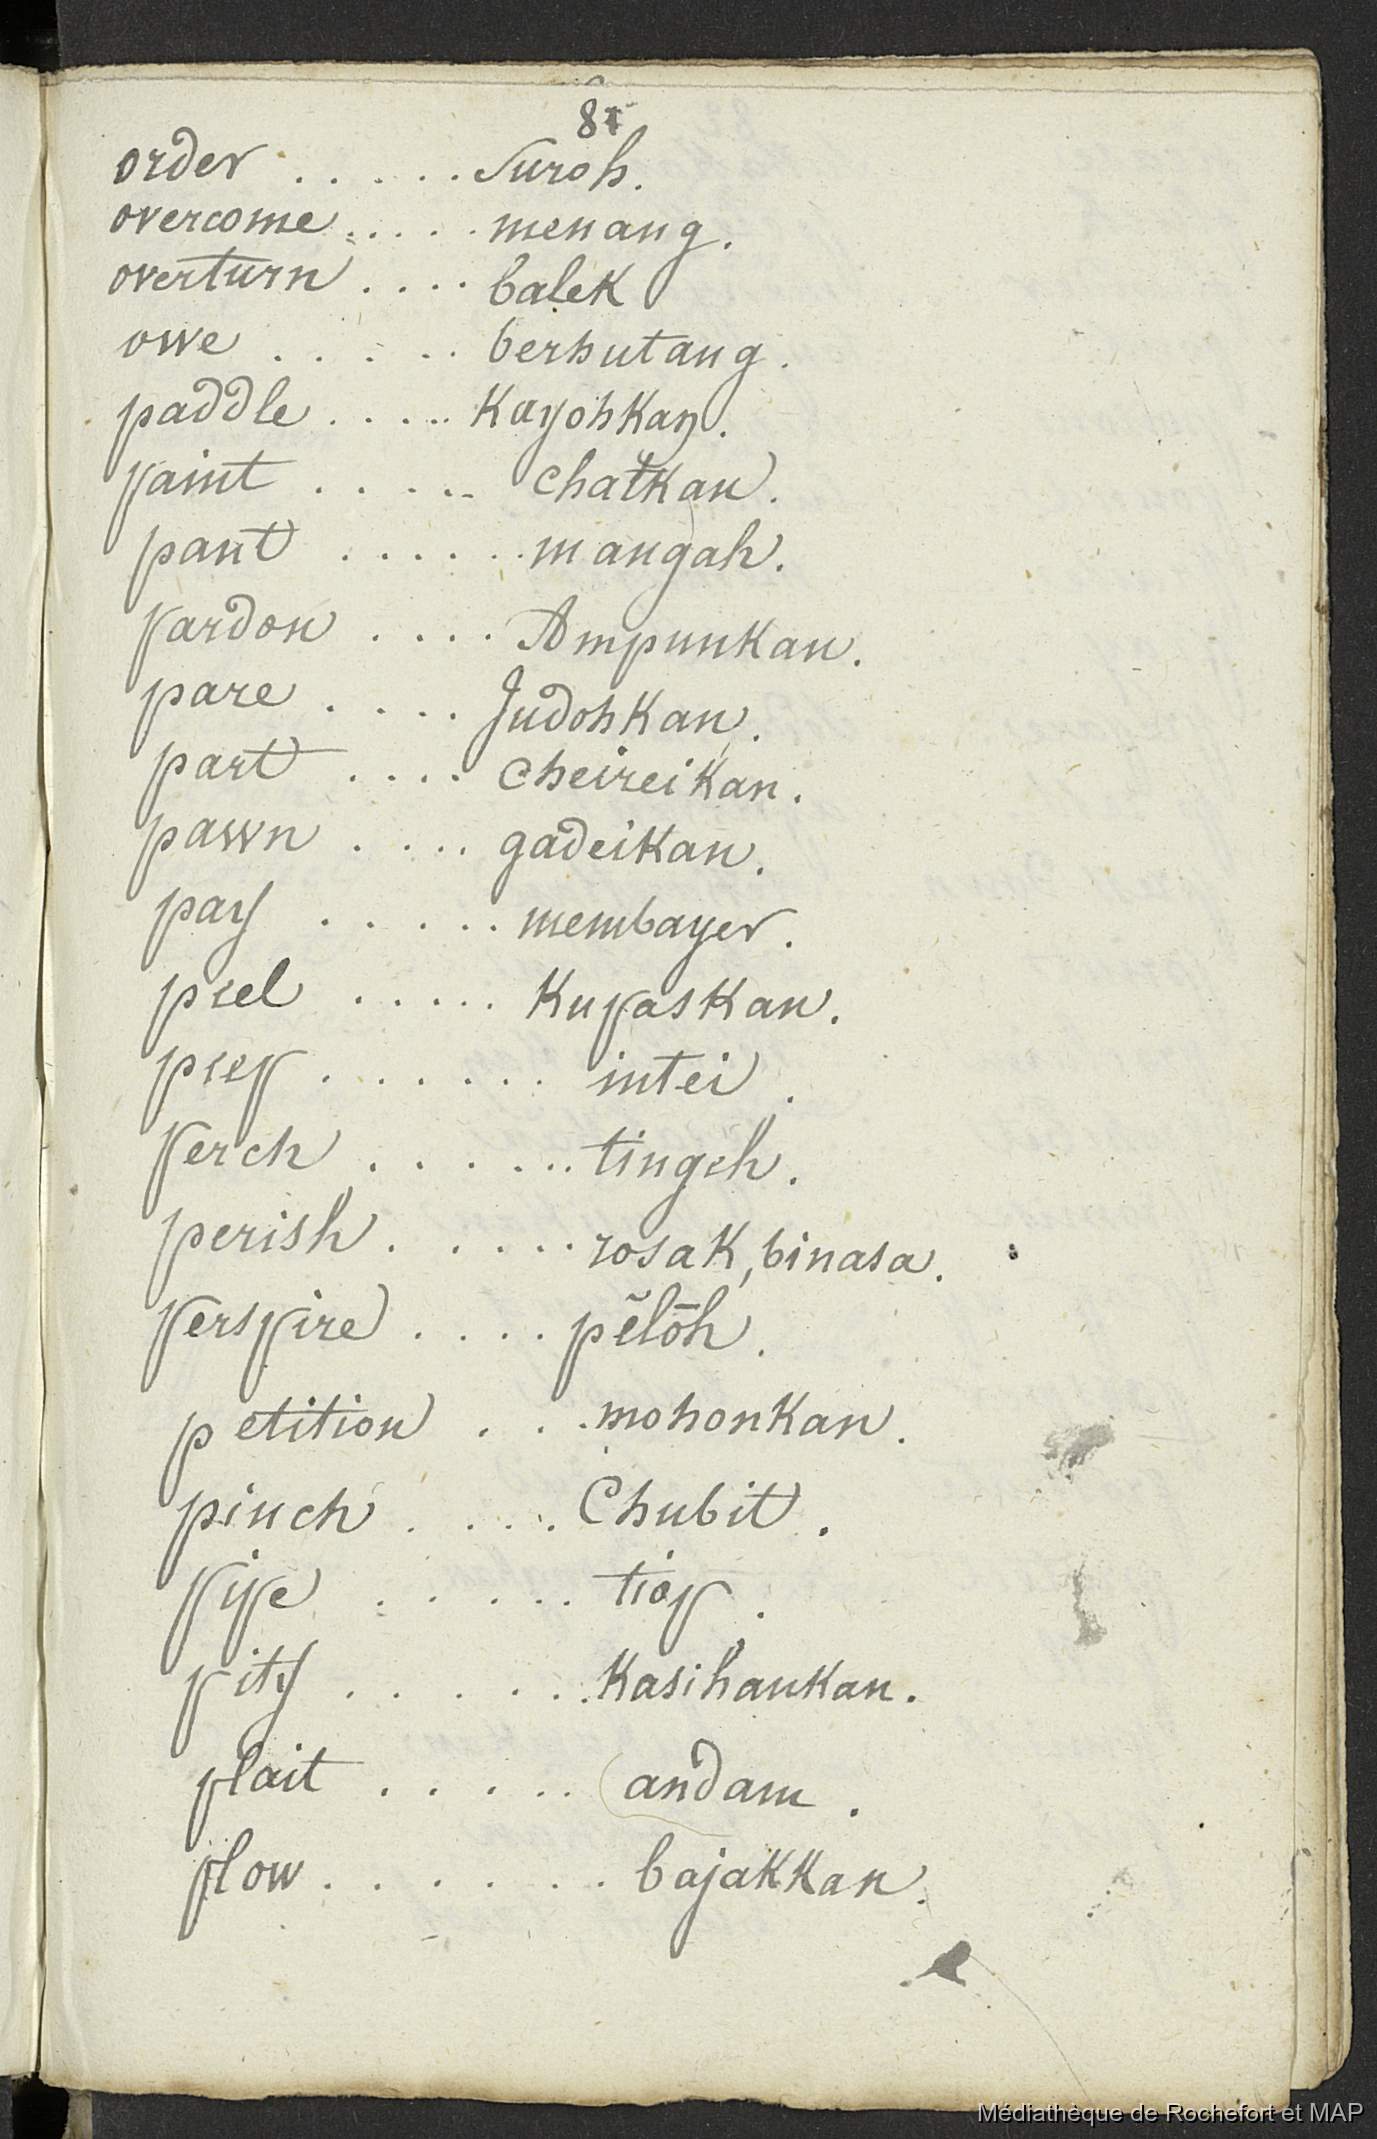 81
order . . . . . Suroh.
overcome . . . . . menang.
overturn . . . . balek
owe . . . . . berhutang.
paddle . . . . . KayohKan.
paint . . . . . chatKan.
pant . . . . . . mangah.
pardon . . . . AmpunKan.
pare . . . . JudohKan.
part . . . . cheireiKan.
pawn . . . . gadeiKan.
pay . . . . . membayer.
peel . . . . . KupasKan.
peep . . . . . . intei.
perch . . . . . . tingeh.
perish . . . . . rosaK, binasa.
perspire . . . . pĕlōh.
petition . . . mohonKan.
pinch . . . . Chubit.
pipe . . . . . tiop.
pity . . . . . . KasihanKan.
plait . . . . . andam.
plow . . . . . . bajaKKan.
Médiathèque de Rochefort et MAP